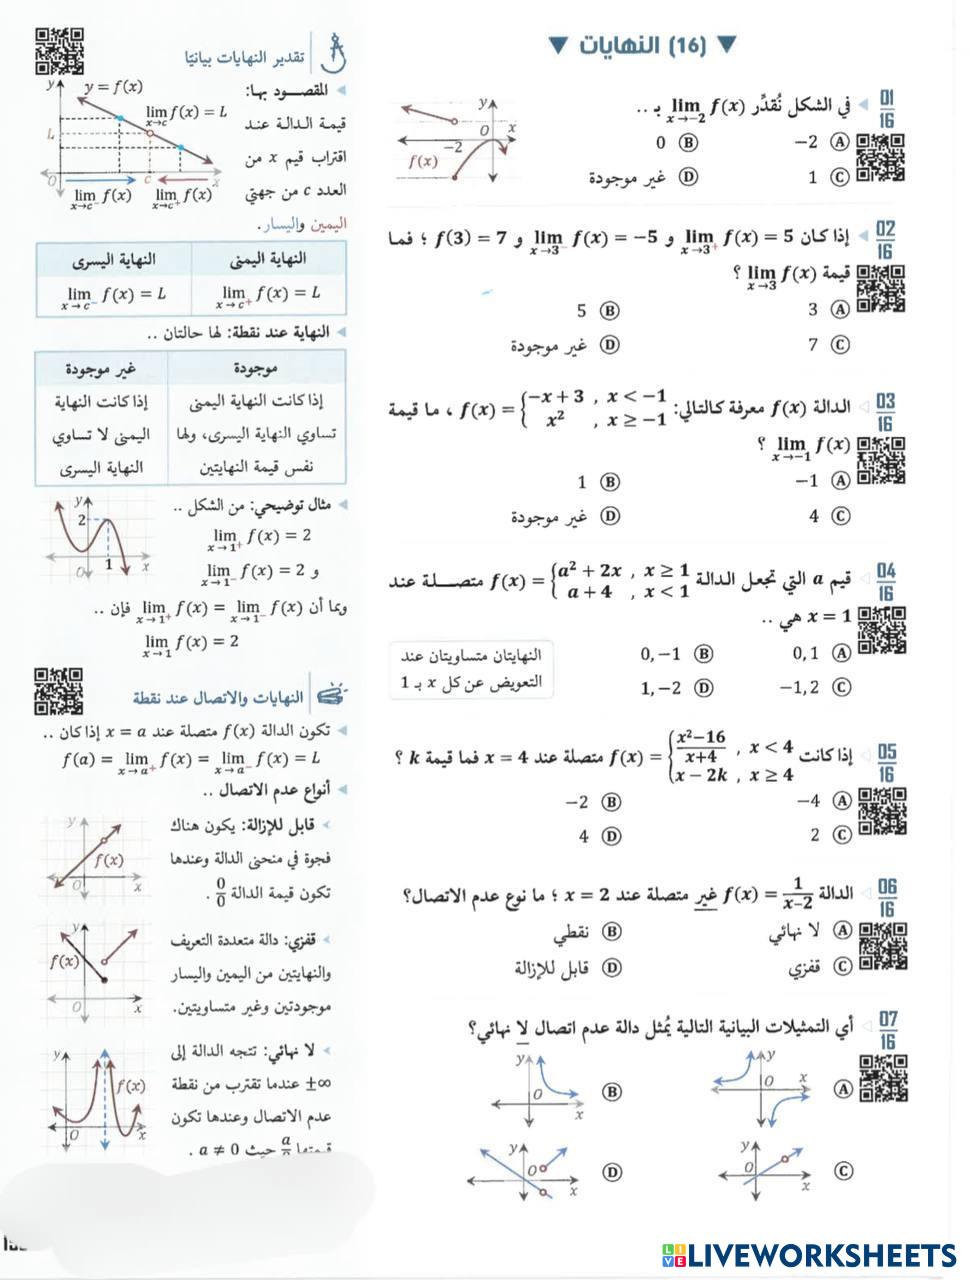 ▼ (16) النهايات ▼
01/16 في الشكل نُقدِّر lim x→−2 f(x) بـ ..
A −2
B 0
C 1
D غير موجودة
y
O
x
−2
f(x)
02/16 إذا كان lim x→3⁺ f(x) = 5 و lim x→3⁻ f(x) = −5 و f(3) = 7 ؛ فما
قيمة lim x→3 f(x) ؟
A 3
B 5
C 7
D غير موجودة
03/16 الدالة f(x) معرفة كالتالي: f(x) = { −x + 3 , x < −1
x² , x ≥ −1 ، ما قيمة
lim x→−1 f(x) ؟
A −1
B 1
C 4
D غير موجودة
04/16 قيم a التي تجعل الدالة f(x) = { a² + 2x , x ≥ 1
a + 4 , x < 1 متصلة عند
x = 1 هي ..
A 0, 1
B 0, −1
C −1, 2
D 1, −2
النهايتان متساويتان عند
التعويض عن كل x بـ 1
05/16 إذا كانت f(x) = { x²−16/x+4 , x < 4
x − 2k , x ≥ 4 متصلة عند x = 4 فما قيمة k ؟
A −4
B −2
C 2
D 4
06/16 الدالة f(x) = 1/x−2 غير متصلة عند x = 2 ؛ ما نوع عدم الاتصال؟
A لا نهائي
B نقطي
C قفزي
D قابل للإزالة
07/16 أي التمثيلات البيانية التالية يُمثل دالة عدم اتصال لا نهائي؟
A y O x
B y O x
C y O x
D y O x
تقدير النهايات بيانيًا
المقصود بها:
قيمة الدالة عند
اقتراب قيم x من
العدد c من جهتي
اليمين واليسار.
y
y = f(x)
lim x→c f(x) = L
L
O
c
x
lim x→c⁻ f(x) lim x→c⁺ f(x)
النهاية اليمنى النهاية اليسرى
lim x→c⁺ f(x) = L lim x→c⁻ f(x) = L
النهاية عند نقطة: لها حالتان ..
موجودة غير موجودة
إذا كانت النهاية اليمنى إذا كانت النهاية
تساوي النهاية اليسرى، ولها اليمنى لا تساوي
نفس قيمة النهايتين النهاية اليسرى
مثال توضيحي: من الشكل ..
lim x→1⁺ f(x) = 2
و lim x→1⁻ f(x) = 2
وبما أن lim x→1⁺ f(x) = lim x→1⁻ f(x) فإن ..
lim x→1 f(x) = 2
y
2
O
1
x
النهايات والاتصال عند نقطة
تكون الدالة f(x) متصلة عند x = a إذا كان ..
f(a) = lim x→a⁺ f(x) = lim x→a⁻ f(x) = L
أنواع عدم الاتصال ..
قابل للإزالة: يكون هناك
فجوة في منحنى الدالة وعندها
تكون قيمة الدالة 0/0 .
y
f(x)
O
x
قفزي: دالة متعددة التعريف
والنهايتين من اليمين واليسار
موجودتين وغير متساويتين.
y
f(x)
O
x
لا نهائي: تتجه الدالة إلى
±∞ عندما تقترب من نقطة
عدم الاتصال وعندها تكون
حيث a ≠ 0 .
y
f(x)
O
x
LIVEWORKSHEETS